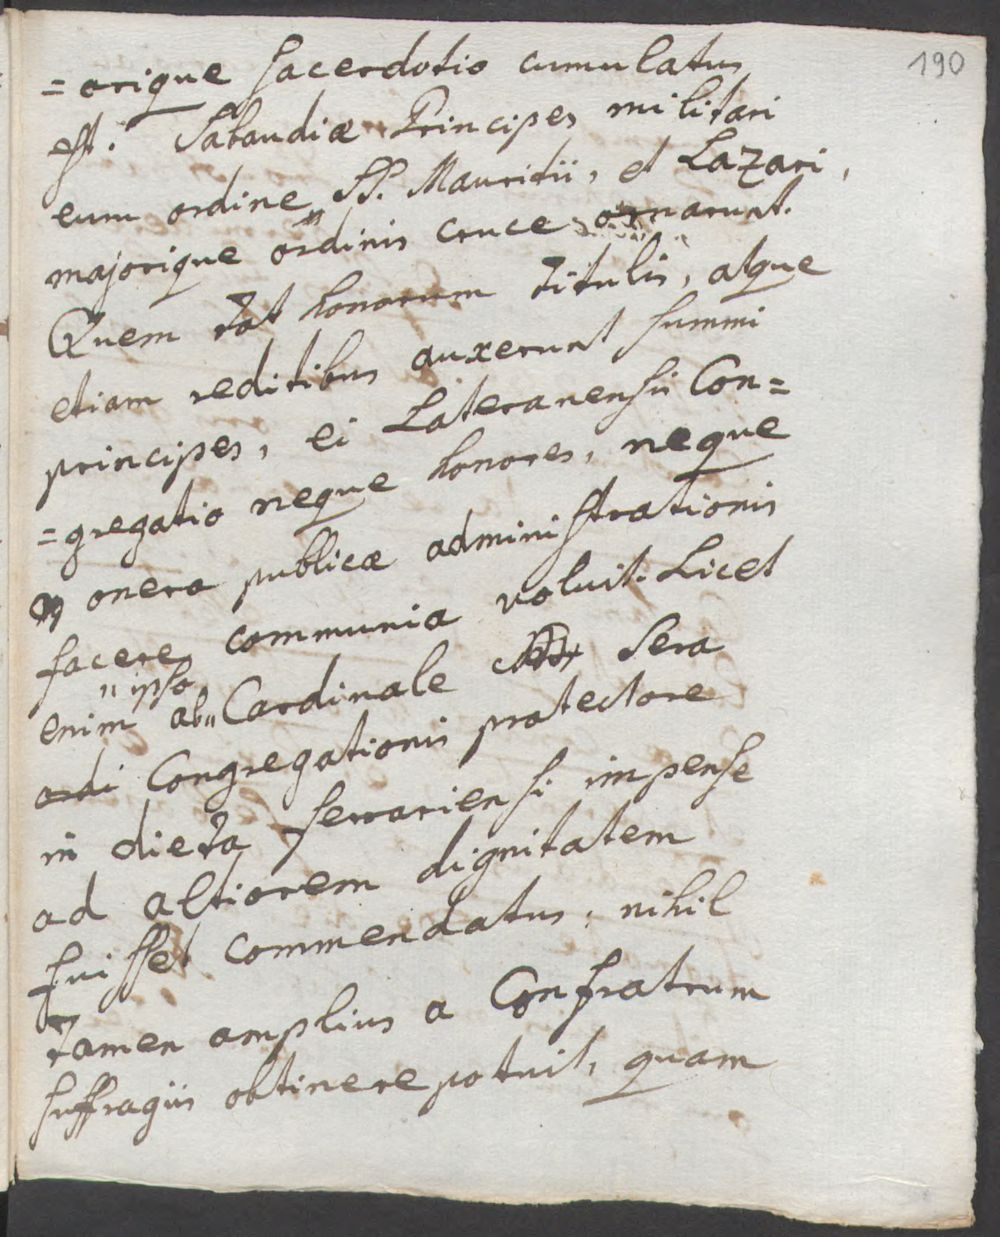 190
=orique sacerdotio cumulatus
est. Sabaudiæ Principes militari
eum ordine SS. Mauritii, et Lazari,
majorique ordinis cruce ornarunt.
Quem tot honorum titulis, atque
etiam reditibus auxerunt summi
principes, ei Lateranensis Con=
=gregatio neque honores, neque
onera publicæ administrationis
facere communia voluit. Licet
enim ab "ipso" Cardinale Sera
Congregationis protectore
in dieta ferrariensi impense
ad altiorem dignitatem
fuisset commendatus, nihil
tamen amplius a Confratrum
suffragiis obtinere potuit, quam